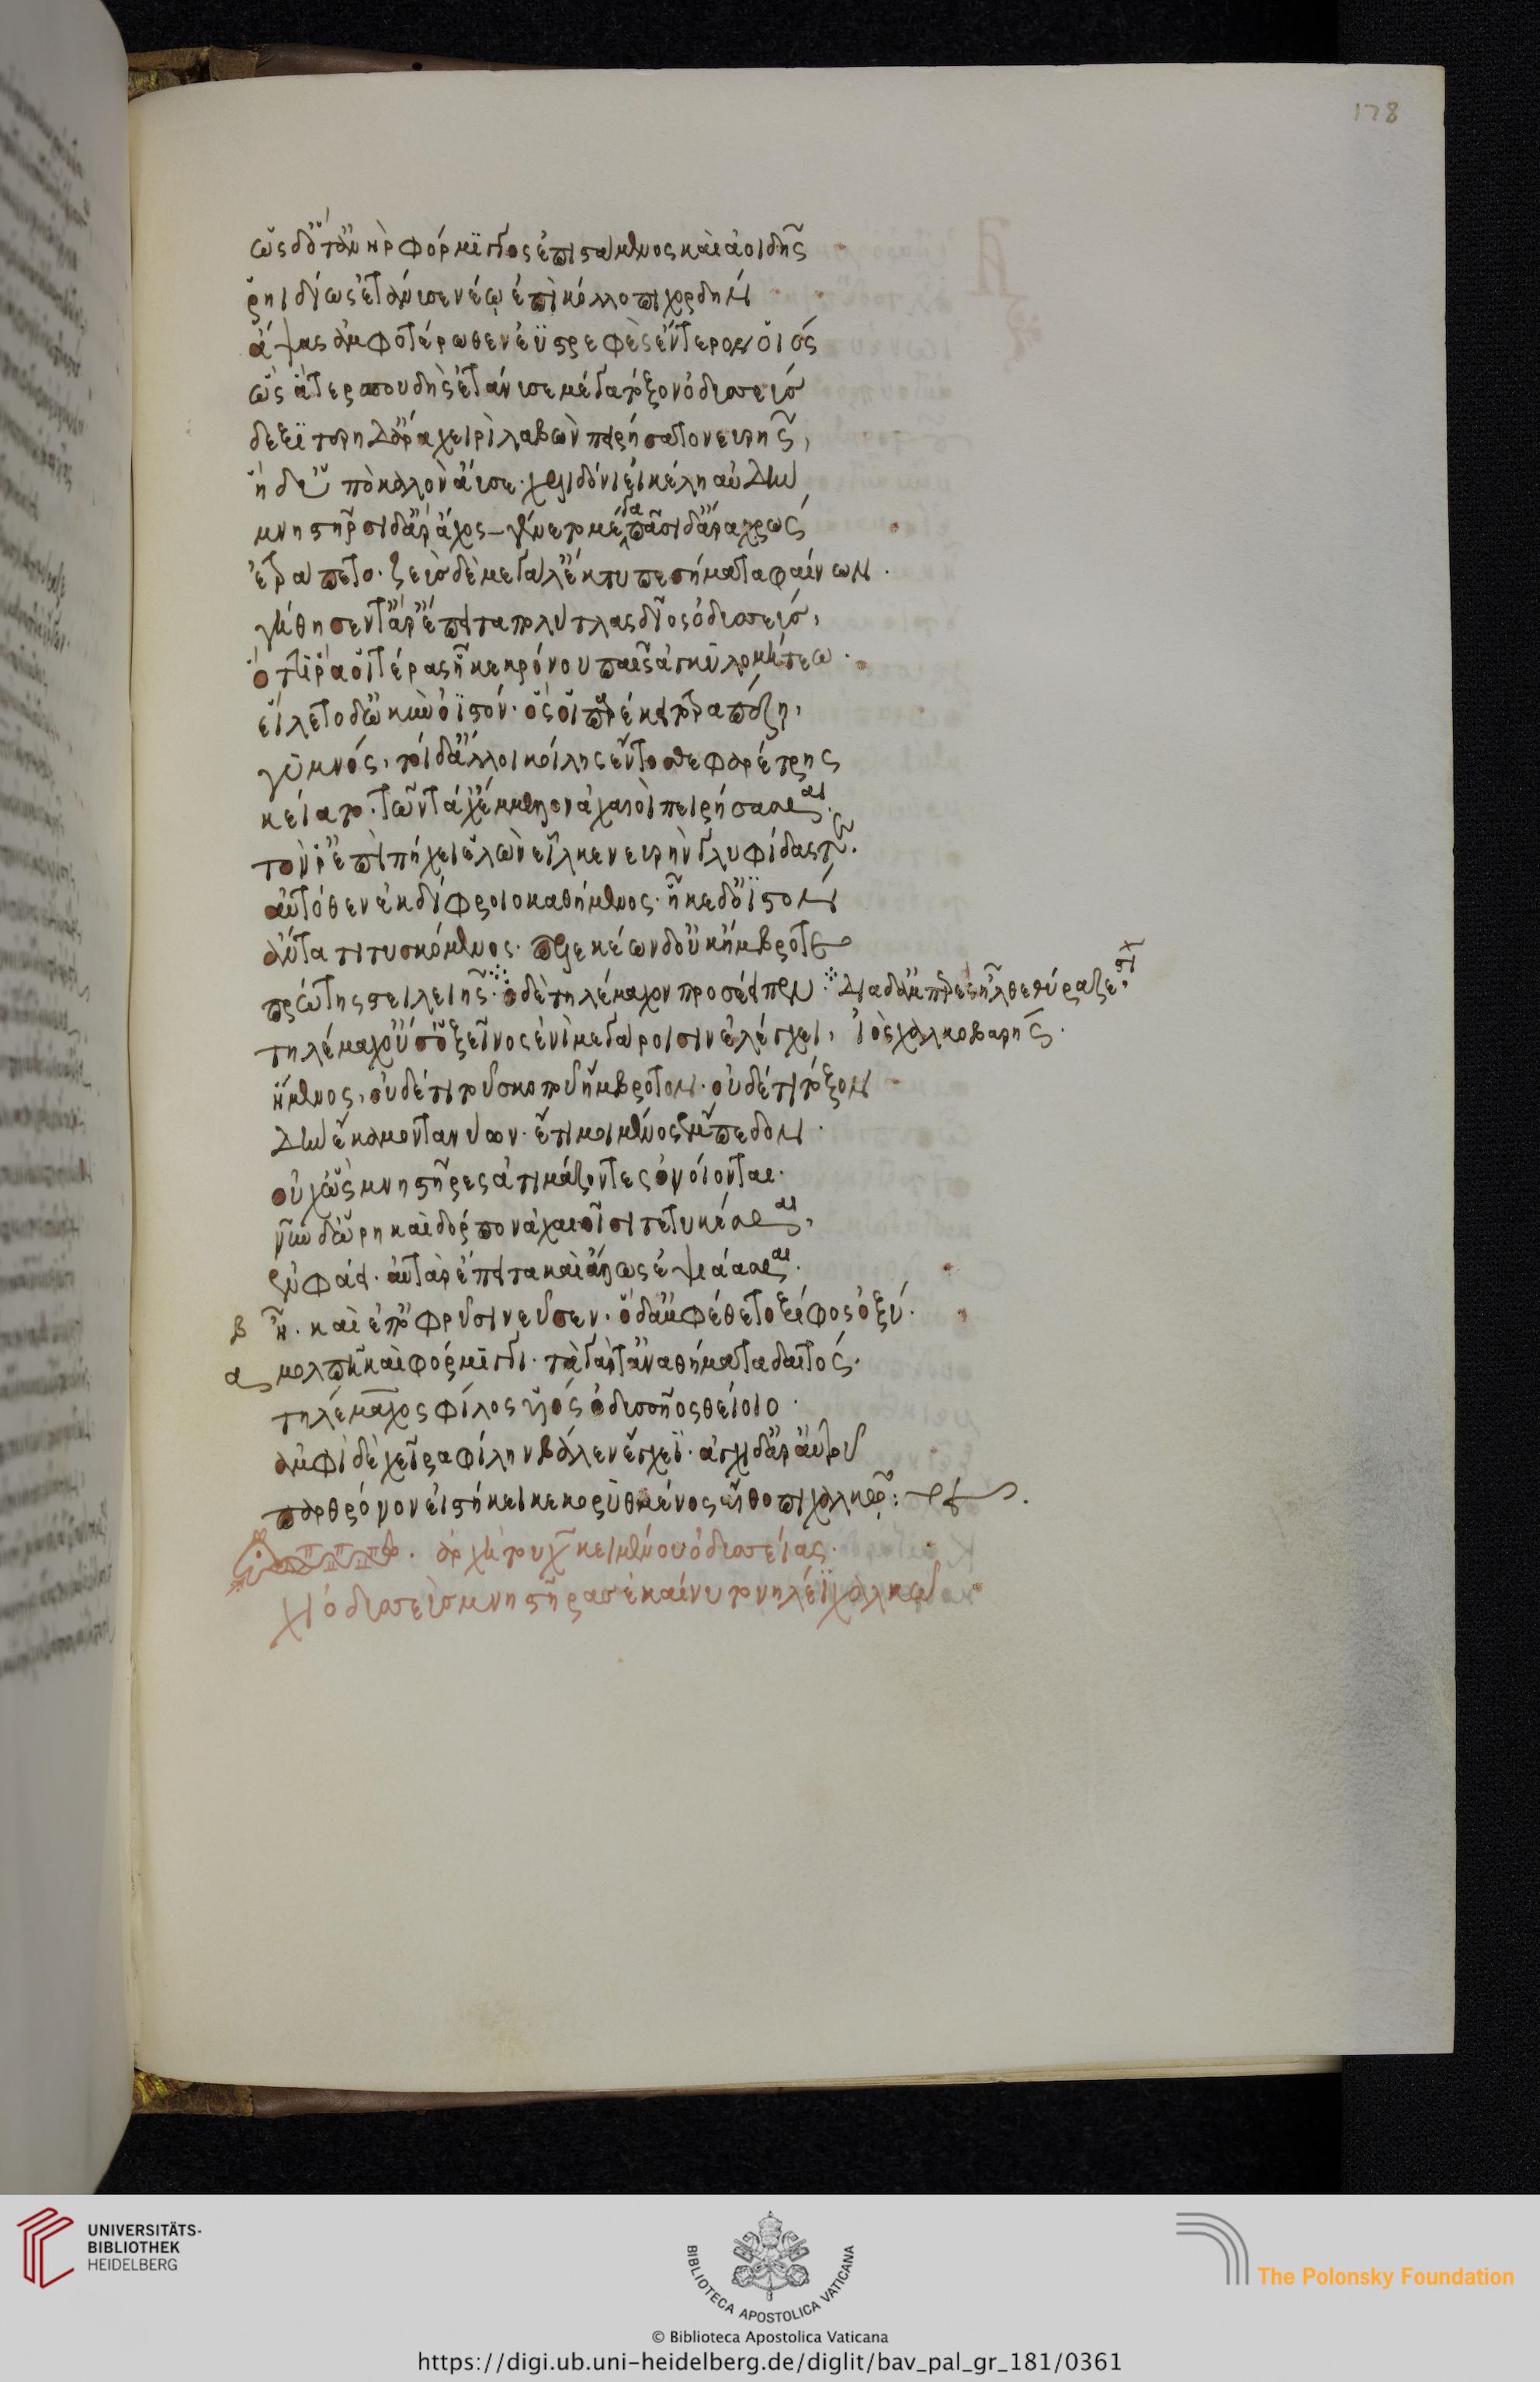 178
ὡς ὅτ' ἀνὴρ φόρμιγγος ἐπιστάμενος καὶ ἀοιδῆς
ῥηϊδίως ἐτάνυσσε νέῳ ἐπὶ κόλλοπι χορδὴν
ἅψας ἀμφοτέρωθεν ἐϋστρεφὲς ἔντερον οἰός
ὣς ἄτερ σπουδῆς ἐτάνυσε μέγα τόξον ὀδυσσεύς
δεξιτερῇ δ' ἄρα χειρὶ λαβὼν πειρήσατο νευρῆς,
ἡ δ' ὑπὸ καλὸν ἄεισε· χελιδόνι εἰκέλη αὐδὴν
μνηστῆρσι δ' ἄρ' ἄχος γένετο μέγα πᾶσι δ' ἄρα χρώς
ἐτράπετο· ζεὺς δὲ μεγάλ' ἔκτυπε σήματα φαίνων.
γήθησέν τ' ἄρ' ἔπειτα πολύτλας δῖος ὀδυσσεύς,
ὅττι ῥά οἱ τέρας ἧκε κρόνου παῖς ἀγκυλομήτεω.
εἵλετο δ' ὠκὺν ὀϊστόν· ὅς οἱ παρέκειτο τραπέζῃ,
γυμνός, τοὶ δ' ἄλλοι κοίλης ἔντοσθε φαρέτρης
κείατο· τῶν τάχ' ἔμελλον ἀχαιοὶ πειρήσασθαι.
τόν ῥ' ἐπὶ πήχει ἑλὼν εἷλκεν νευρὴν γλυφίδας τε.
αὐτόθεν ἐκ δίφροιο καθήμενος· ἧκε δ' ὀϊστὸν
ἄντα τιτυσκόμενος· πελεκέων δ' οὐκ ἤμβροτε
πρώτης στειλειῆς· ὁ δὲ τηλέμαχον προσέειπεν· διὰ δ' ἀμπερὲς ἦλθε θύραζε.
τηλέμαχ' οὔ σ' ὁ ξεῖνος ἐνὶ μεγάροισιν ἐλέγχει, ἰὸς χαλκοβαρής.
ἥμενος, οὐδέ τι τοῦ σκοποῦ ἤμβροτον· οὐδέ τι τόξον
δὴν ἔκαμον τανύων· ἔτι μοι μένος ἔμπεδον.
οὐχ ὥς μνηστῆρες ἀτιμάζοντες ὄνονται·
νῦν δ' ὥρη καὶ δόρπον ἀχαιοῖσι τετυκέσθαι,
ἐν φάει· αὐτὰρ ἔπειτα καὶ ἄλλως ἑψιάασθαι.
β ἦ· καὶ ἐπ' ὀφρύσι νεῦσεν· ὁ δ' ἀμφέθετο ξίφος ὀξύ.
α μολπῇ καὶ φόρμιγγι· τὰ γάρ τ' ἀναθήματα δαιτός.
τηλέμαχος φίλος υἱός ὀδυσσῆος θείοιο.
ἀμφὶ δὲ χεῖρα φίλην βάλεν ἔγχεϊ· ἄγχι δ' ἄρ' αὐτοῦ
πὰρ θρόνον εἱστήκει κεκορυθμένος αἴθοπι χαλκῷ:
ὀδυσσείας.
ὀδυσσεὺς μνηστῆρας ἐκαίνυτο νηλέϊ χαλκῷ
UNIVERSITÄTS-
BIBLIOTHEK
HEIDELBERG
BIBLIOTECA APOSTOLICA VATICANA
The Polonsky Foundation
© Biblioteca Apostolica Vaticana
https://digi.ub.uni-heidelberg.de/diglit/bav_pal_gr_181/0361